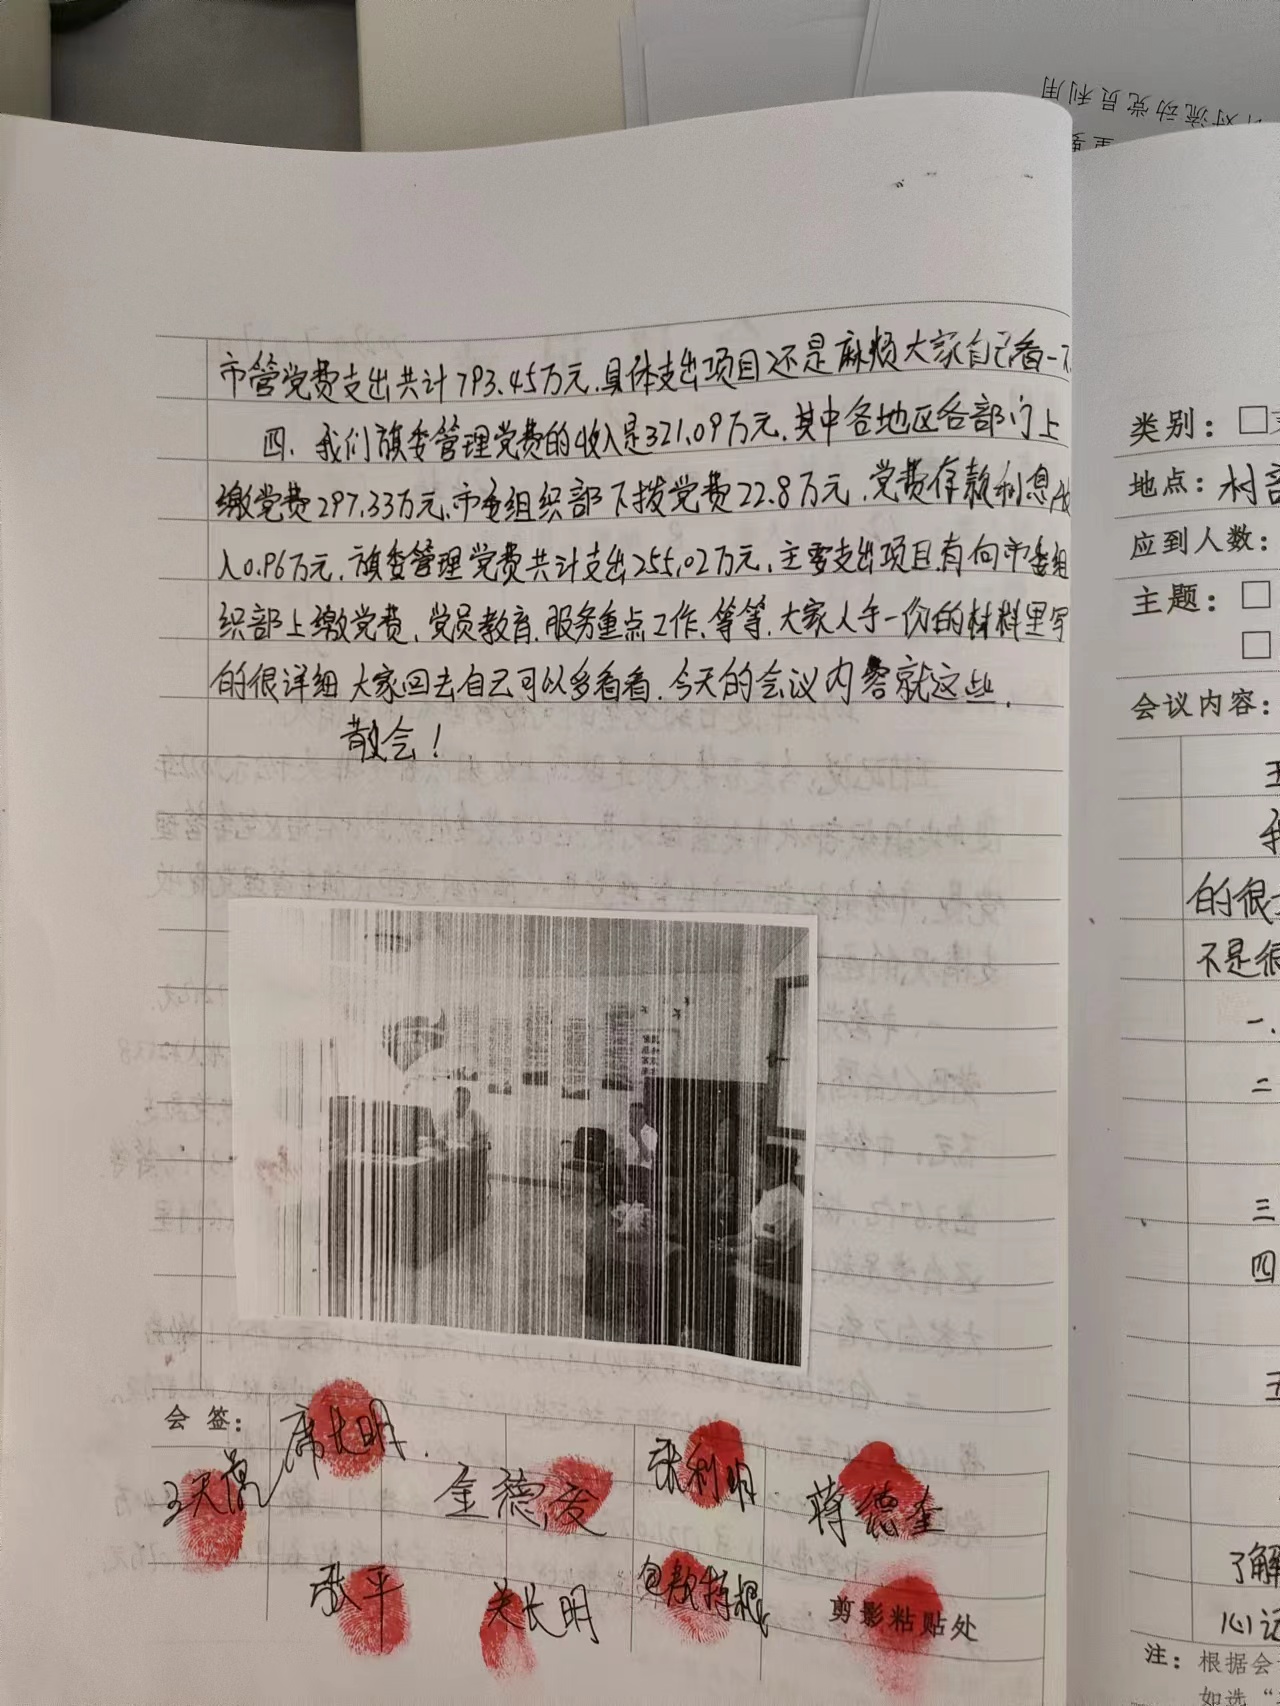 针对流动党员利用
市管党费支出共计793.45万元.具体支出项目还是麻烦大家自己看一下
四、我们旗委管理党费的收入是321.09万元.其中各地区各部门上
缴党费297.33万元.市委组织部下拨党费22.8万元.党费存款利息收
入0.96万元.旗委管理党费共计支出255.02万元.主要支出项目有向市委组
织部上缴党费、党员教育.服务重点工作、等等.大家人手一份的材料里写
的很详细 大家回去自己可以多看看.今天的会议内容就这些.
散会！
会签：
席长明
张利明
蒋德奎
金德
张平
关长明
包敖特根
剪影粘贴处
类别：□
地点：村部
应到人数：
主题：□
□
会议内容：
的很
不是很
一、
二
三
四
五
了解
心记
注：根据会
如选“